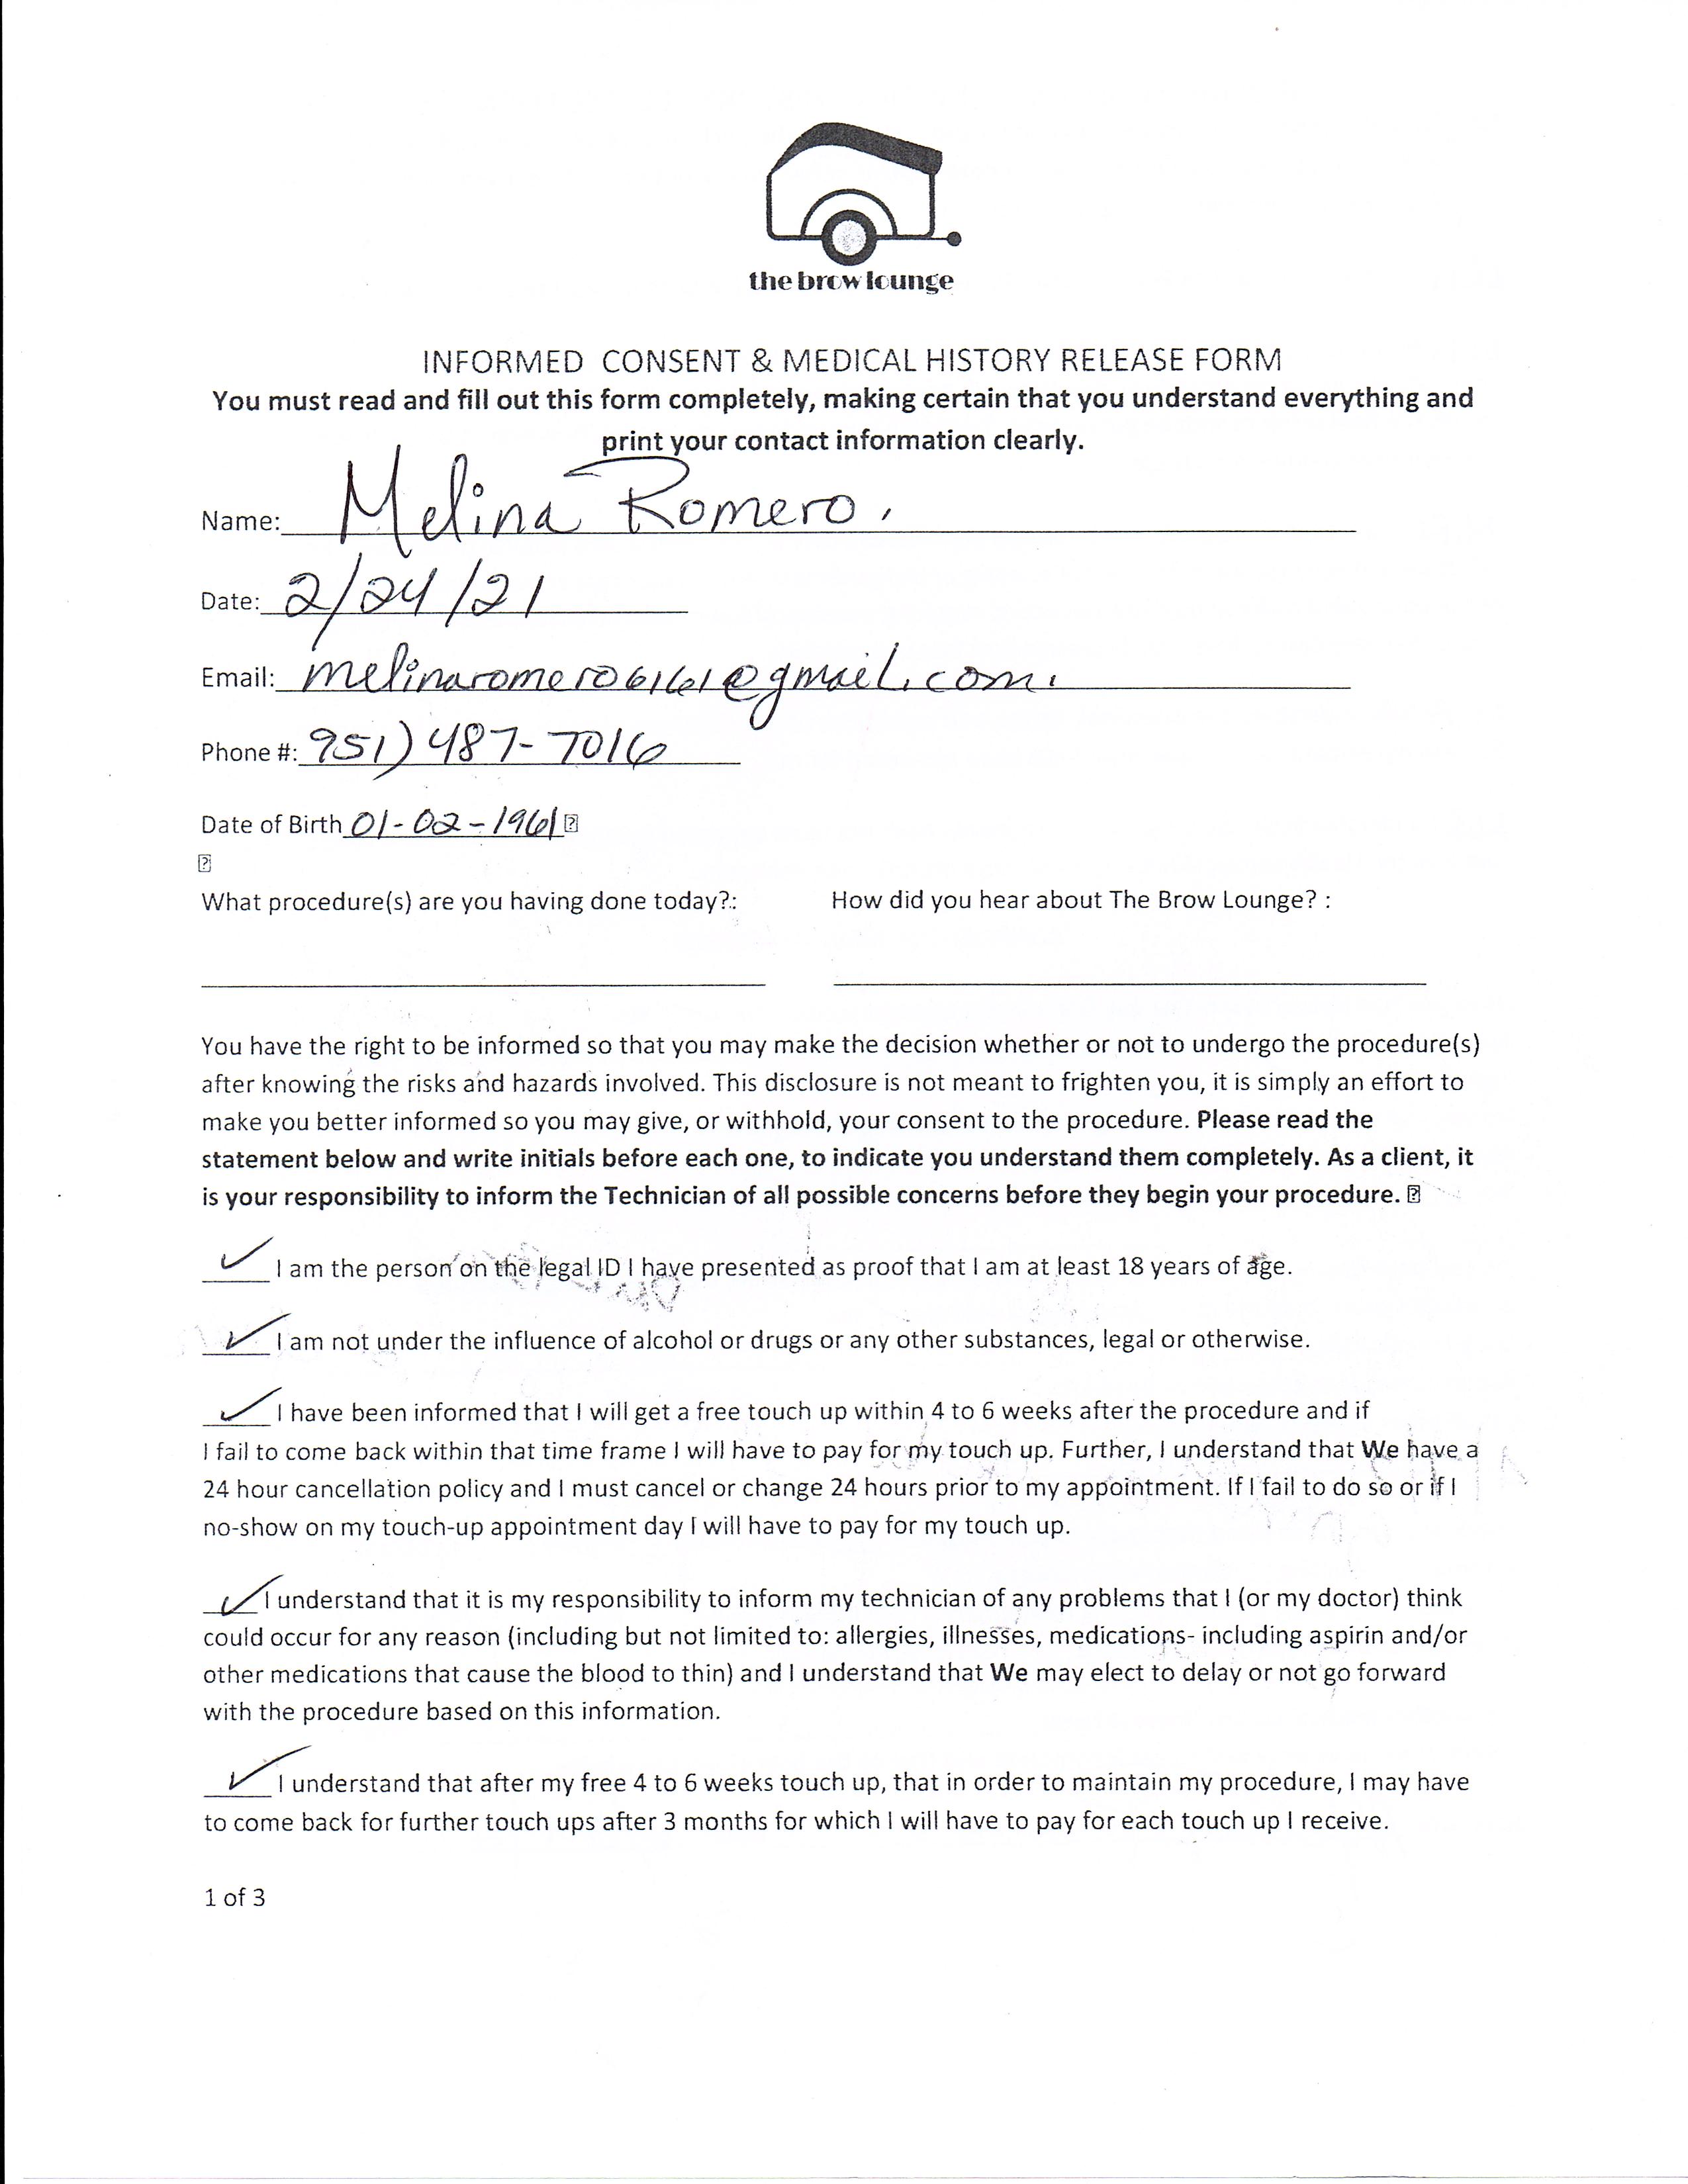 the brow lounge
INFORMED CONSENT & MEDICAL HISTORY RELEASE FORM
You must read and fill out this form completely, making certain that you understand everything and
print your contact information clearly.
Name: Melina Romero.
Date: 2/24/21
Email: melinaromero6161@gmail.com.
Phone #: 951) 487-7016
Date of Birth 01-02-1961
What procedure(s) are you having done today?: How did you hear about The Brow Lounge? :
You have the right to be informed so that you may make the decision whether or not to undergo the procedure(s)
after knowing the risks and hazards involved. This disclosure is not meant to frighten you, it is simply an effort to
make you better informed so you may give, or withhold, your consent to the procedure. Please read the
statement below and write initials before each one, to indicate you understand them completely. As a client, it
is your responsibility to inform the Technician of all possible concerns before they begin your procedure.
✓ I am the person on the legal ID I have presented as proof that I am at least 18 years of age.
✓ I am not under the influence of alcohol or drugs or any other substances, legal or otherwise.
✓ I have been informed that I will get a free touch up within 4 to 6 weeks after the procedure and if
I fail to come back within that time frame I will have to pay for my touch up. Further, I understand that We have a
24 hour cancellation policy and I must cancel or change 24 hours prior to my appointment. If I fail to do so or if I
no-show on my touch-up appointment day I will have to pay for my touch up.
✓ I understand that it is my responsibility to inform my technician of any problems that I (or my doctor) think
could occur for any reason (including but not limited to: allergies, illnesses, medications- including aspirin and/or
other medications that cause the blood to thin) and I understand that We may elect to delay or not go forward
with the procedure based on this information.
✓ I understand that after my free 4 to 6 weeks touch up, that in order to maintain my procedure, I may have
to come back for further touch ups after 3 months for which I will have to pay for each touch up I receive.
1 of 3